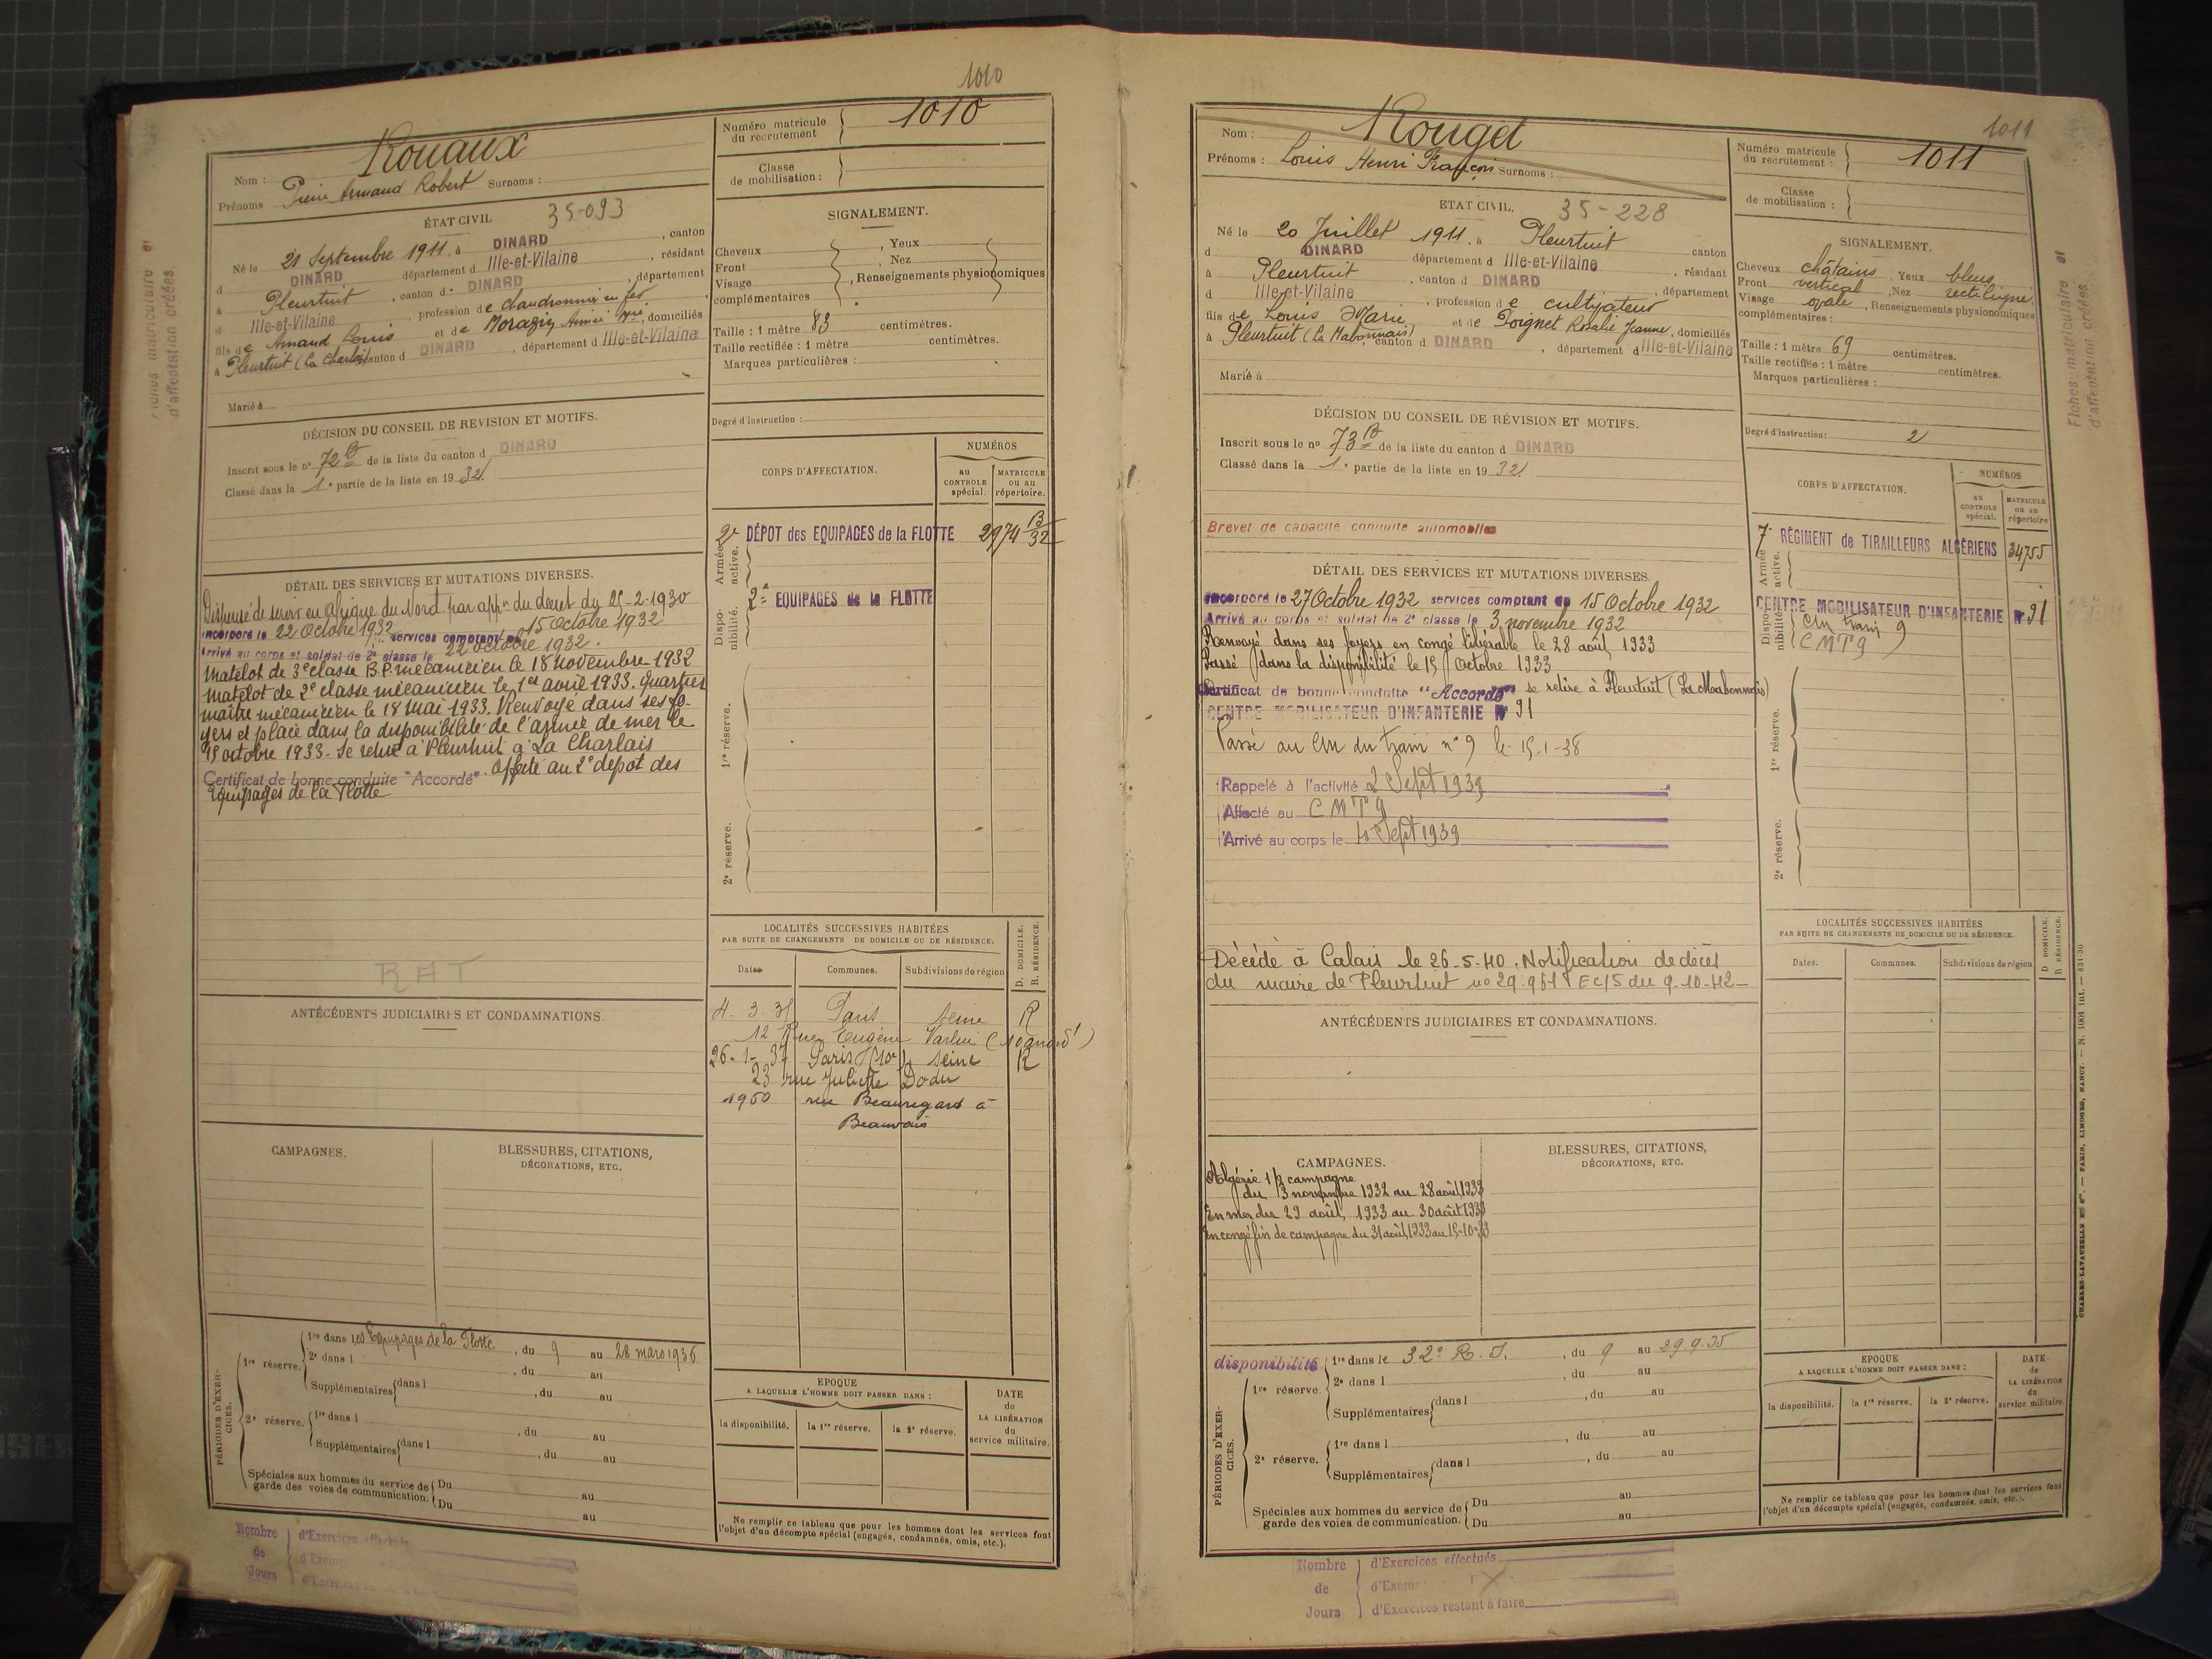 1010
Rouaux
Nom :
Prénoms Pierre Armand Robert Surnoms :
ÉTAT CIVIL 35-093
Né le 21 Septembre 1911, à DINARD, canton
d DINARD département d Ille-et-Vilaine, résidant
à Pleurtuit, canton d DINARD, département
d Ille-et-Vilaine, profession de chaudronnier en fer
fils de Armand Louis et de Morazin Aimée Mie, domiciliés
à Pleurtuit (La Charlais) canton d DINARD, département d Ille-et-Vilaine
Marié à
DÉCISION DU CONSEIL DE REVISION ET MOTIFS.
Inscrit sous le n° 72 B de la liste du canton d DINARD
Classé dans la 1e partie de la liste en 1932.
DÉTAIL DES SERVICES ET MUTATIONS DIVERSES.
Dispensé de servir en Afrique du Nord par appon du décret du 25-2-1930
Incorporé le 22 octobre 1932 services comptant du 15 octobre 1932
Arrivé au corps et soldat de 2e classe le 22 octobre 1932.
Matelot de 3e classe B.P. mécanicien le 18 novembre 1932
Matelot de 2e classe mécanicien le 1er avril 1933. Quartier
maître mécanicien le 18 mai 1933. Renvoyé dans ses fo-
yers et placé dans la disponibilité de l'armée de mer le
15 octobre 1933. Se retire à Pleurtuit à La Charlais
Certificat de bonne conduite "Accordé". Affecté au 2e dépôt des
Equipages de la Flotte
RAT
ANTÉCÉDENTS JUDICIAIRES ET CONDAMNATIONS.
CAMPAGNES.
BLESSURES, CITATIONS,
DÉCORATIONS, ETC.
PÉRIODES D'EXER-
CICES.
1re réserve. 1re dans les Equipages de la Flotte, du 9 au 28 mars 1936
2e dans l , du au
Supplémentaires dans l , du au
2e réserve. 1re dans l , du au
Supplémentaires dans l , du au
Spéciales aux hommes du service de garde des voies de communication. Du au
Du au
Nombre de Jours
d'Exercices effectués
Numéro matricule du recrutement 1010
Classe de mobilisation :
SIGNALEMENT.
Cheveux , Yeux
Front , Nez
Visage , Renseignements physionomiques
complémentaires
Taille : 1 mètre 83 centimètres.
Taille rectifiée : 1 mètre centimètres.
Marques particulières :
Degré d'instruction :
CORPS D'AFFECTATION.
NUMÉROS
au CONTROLE spécial.
MATRICULE ou au répertoire.
Armée active.
2e DÉPOT des EQUIPAGES de la FLOTTE 2974 B/32
Disponibilité.
2e EQUIPAGES de la FLOTTE
1re réserve.
2e réserve.
LOCALITÉS SUCCESSIVES HABITÉES
PAR SUITE DE CHANGEMENTS DE DOMICILE OU DE RÉSIDENCE.
D. DOMICILE.
R. RÉSIDENCE.
Dates Communes. Subdivisions de région
4-3-35 Paris Seine R
12 Rue Eugène Varlin (10 arrondt)
26-1-37 Paris (10e) Seine R
23 rue Juliette Dodu
1960 rue Beauregard à
Beauvais
EPOQUE
A LAQUELLE L'HOMME DOIT PASSER DANS :
la disponibilité. la 1re réserve. la 2e réserve.
DATE
de
LA LIBÉRATION
du
service militaire.
Ne remplir ce tableau que pour les hommes dont les services font
l'objet d'un décompte spécial (engagés, condamnés, omis, etc.).
1011
Nom : Rouget
Prénoms : Louis Henri François Surnoms :
ETAT CIVIL. 35-228
Né le 20 Juillet 1911, à Pleurtuit canton
d DINARD département d Ille-et-Vilaine, résidant
à Pleurtuit, canton d DINARD, département
d Ille-et-Vilaine, profession de cultivateur
fils de Louis Marie et de Doignet Rosalie Jeanne, domiciliés
à Pleurtuit (La Mabonnais) canton d DINARD, département d Ille-et-Vilaine
Marié à
DÉCISION DU CONSEIL DE RÉVISION ET MOTIFS.
Inscrit sous le n° 73 B de la liste du canton d DINARD
Classé dans la 1e partie de la liste en 1932
Brevet de capacité conduite automobiles
DÉTAIL DES SERVICES ET MUTATIONS DIVERSES.
Incorporé le 27 Octobre 1932 services comptant du 15 Octobre 1932
Arrivé au corps et soldat de 2e classe le 3 novembre 1932
Renvoyé dans ses foyers en congé libérable le 28 août 1933
Passé dans la disponibilité le 15 Octobre 1933
Certificat de bonne conduite "Accordé" se retire à Pleurtuit (La Mabonnais)
CENTRE MOBILISATEUR D'INFANTERIE N° 91
Passé au CM du train n° 9 le 15-1-38
Rappelé à l'activité 2 Sept 1939
Affecté au CMT 9
Arrivé au corps le 10 Sept 1939
Décédé à Calais le 26-5-40. Notification de décès
du maire de Pleurtuit no 29.961 EC/5 du 9-10-42-
ANTÉCÉDENTS JUDICIAIRES ET CONDAMNATIONS.
CAMPAGNES.
Algérie 1/2 campagne
du 3 novembre 1932 au 28 août 1933
En mer du 29 août 1933 au 30 août 1933
En congé fin de campagne du 31 août 1933 au 15-10-33
BLESSURES, CITATIONS,
DÉCORATIONS, ETC.
PÉRIODES D'EXER-
CICES.
disponibilité 1re dans le 32e R.I., du 9 au 29.9.35
1re réserve. 2e dans l , du au
Supplémentaires dans l , du au
2e réserve. 1re dans l , du au
Supplémentaires dans l , du au
Spéciales aux hommes du service de garde des voies de communication. Du au
Du au
Nombre de Jours
d'Exercices effectués
d'Exercices restant à faire
Numéro matricule du recrutement : 1011
Classe de mobilisation :
SIGNALEMENT.
Cheveux châtains, Yeux bleus
Front vertical, Nez rectiligne
Visage ovale, Renseignements physionomiques
complémentaires :
Taille : 1 mètre 69 centimètres.
Taille rectifiée : 1 mètre centimètres.
Marques particulières :
Degré d'instruction : 2
CORPS D'AFFECTATION.
NUMÉROS
au CONTROLE spécial.
MATRICULE ou au répertoire
Armée active.
7e RÉGIMENT de TIRAILLEURS ALGÉRIENS 34755
Disponibilité.
CENTRE MOBILISATEUR D'INFANTERIE N° 91
CM train 9
CMT 9
1re réserve.
2e réserve.
LOCALITÉS SUCCESSIVES HABITÉES
PAR SUITE DE CHANGEMENTS DE DOMICILE OU DE RÉSIDENCE.
D DOMICILE.
R RÉSIDENCE.
Dates. Communes. Subdivisions de région
EPOQUE
A LAQUELLE L'HOMME DOIT PASSER DANS :
la disponibilité. la 1re réserve. la 2e réserve.
DATE
de
LA LIBÉRATION
du
service militaire.
Ne remplir ce tableau que pour les hommes dont les services font
l'objet d'un décompte spécial (engagés, condamnés, omis, etc.).
Fiches matriculaire et
d'affectation créées
CHARLES-LAVAUZELLE ET Cie. — PARIS, LIMOGES, NANCY. — N. 1001 Int. — 631-30